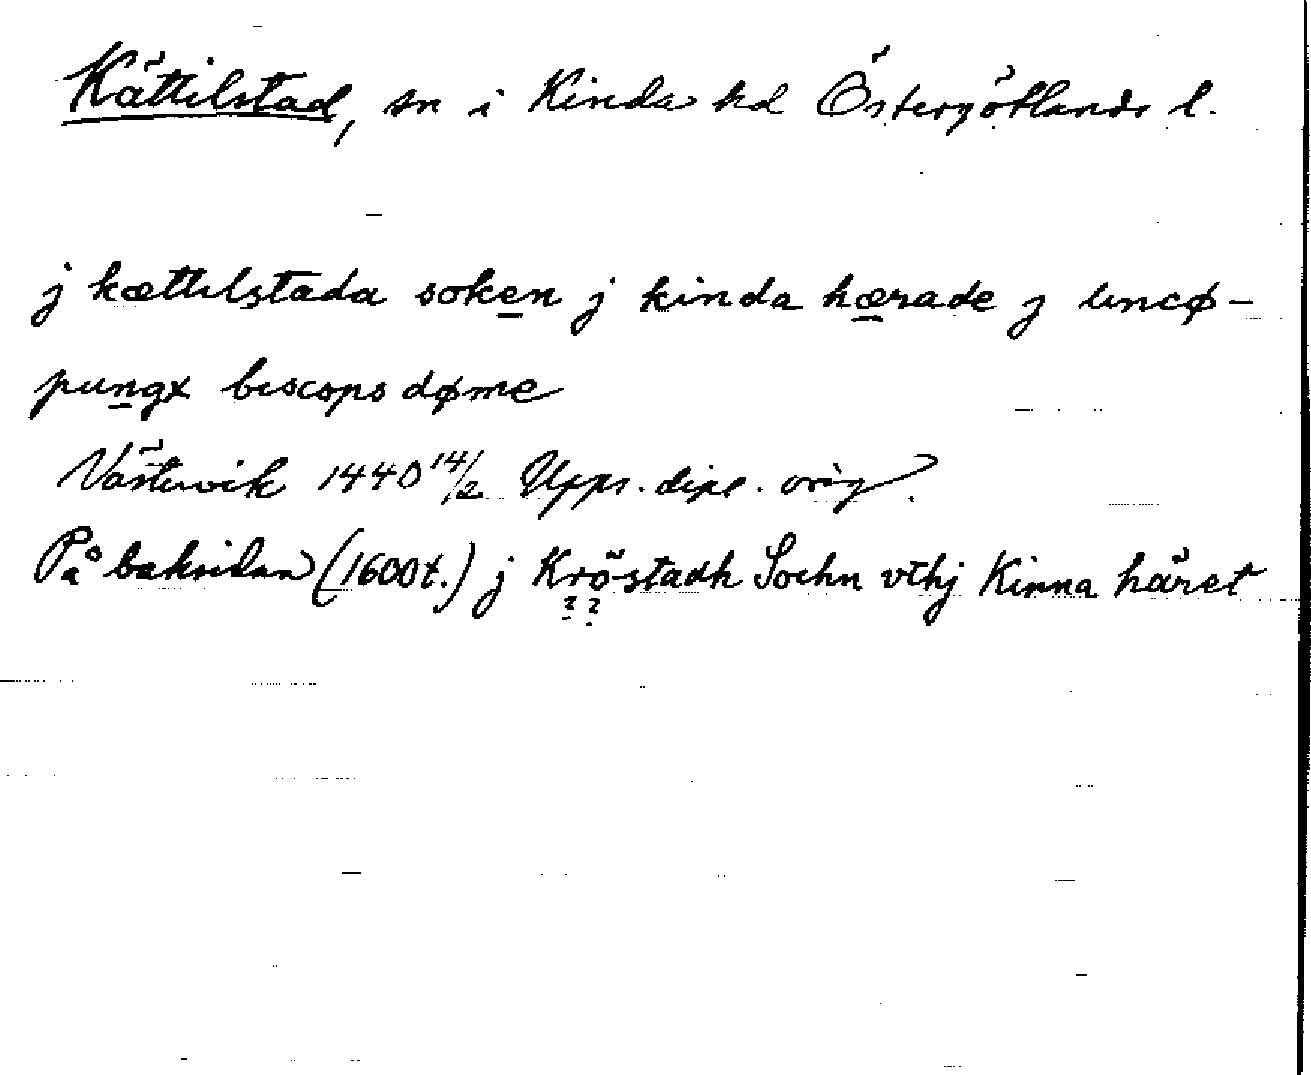 Kättilstad, sn i Kinda hd Östergötlands l.
j kættilstada soken j kinda hærade j lincø-
pungx biscops døme
Västervik 1440 14/2 Upps. dipl. orig.
På baksidan (1600t.) j Kröstadh Sochn vthj Kinna häret
? ?